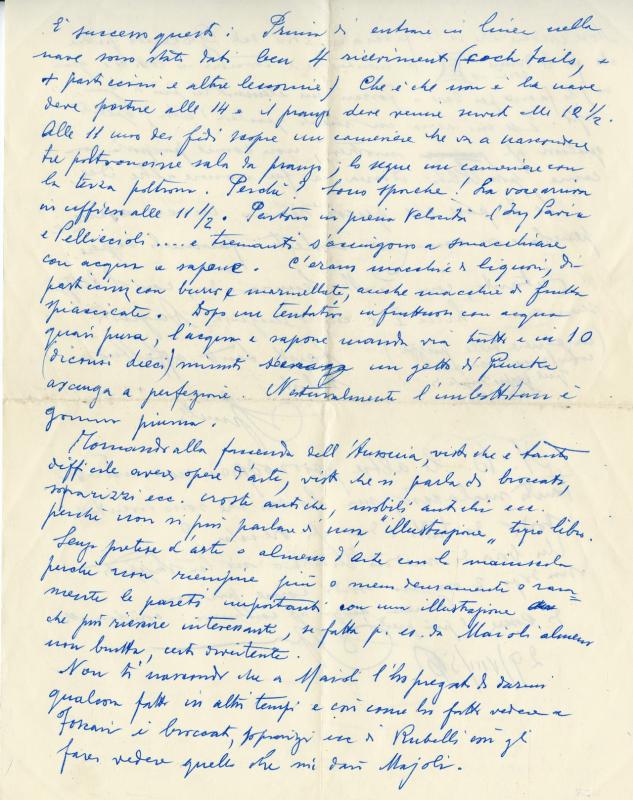 È successo questo: Prima di entrare in linea nella
nave sono stati dati ben 4 ricevimenti (cock tails,
panini e altre leccornie) Che è che non è la nave
deve partire alle 14 e il pranzo deve venire servito alle 12 1/2.
Alle 11 uno dei fidi scopre un cameriere che va a nascondere
tre poltroncine sala da pranzo; lo segue un cameriere con
la terza poltrona. Perché? Sono sporche! La voce arriva
in ufficio alle 11 1/2. Partono in piena velocità (Ing Pavia
e Pelliccioli .... e tremanti s'accingono a smacchiare
con acqua e sapone. C'erano macchie di liquori, di
panini con burro e marmellata, anche macchie di frutta
spiaccicate. Dopo un tentativo infruttuoso con acqua
quasi pura, l'acqua e sapone manda via tutto e in 10
(dicansi dieci) minuti un getto di
asciuga a perfezione. Naturalmente l'imbottitura è
gomma piuma.
Tornando alla faccenda dell'Ausonia, visto che è tanto
difficile avere opere d'arte, visto che si parla di broccati,
soprarizzi ecc. croste antiche, mobili antichi ecc.
perché non si può parlare di una "illustrazione" tipo libro.
Senza pretese d'arte o almeno d'Arte con la maiuscola
perché non riempire più o meno densamente o rara=
mente le pareti importanti con una illustrazione
che può riuscire interessante, se fatta p. es. da Majoli almeno
non brutta, certo divertente.
Non ti nascondo che a Majoli l'ho pregato di darmi
qualcosa fatto in altri tempi e così come ho fatto vedere a
Foscari i broccati, soprarizzi ecc di Rubelli così gli
farei vedere quello che mi darà Majoli.